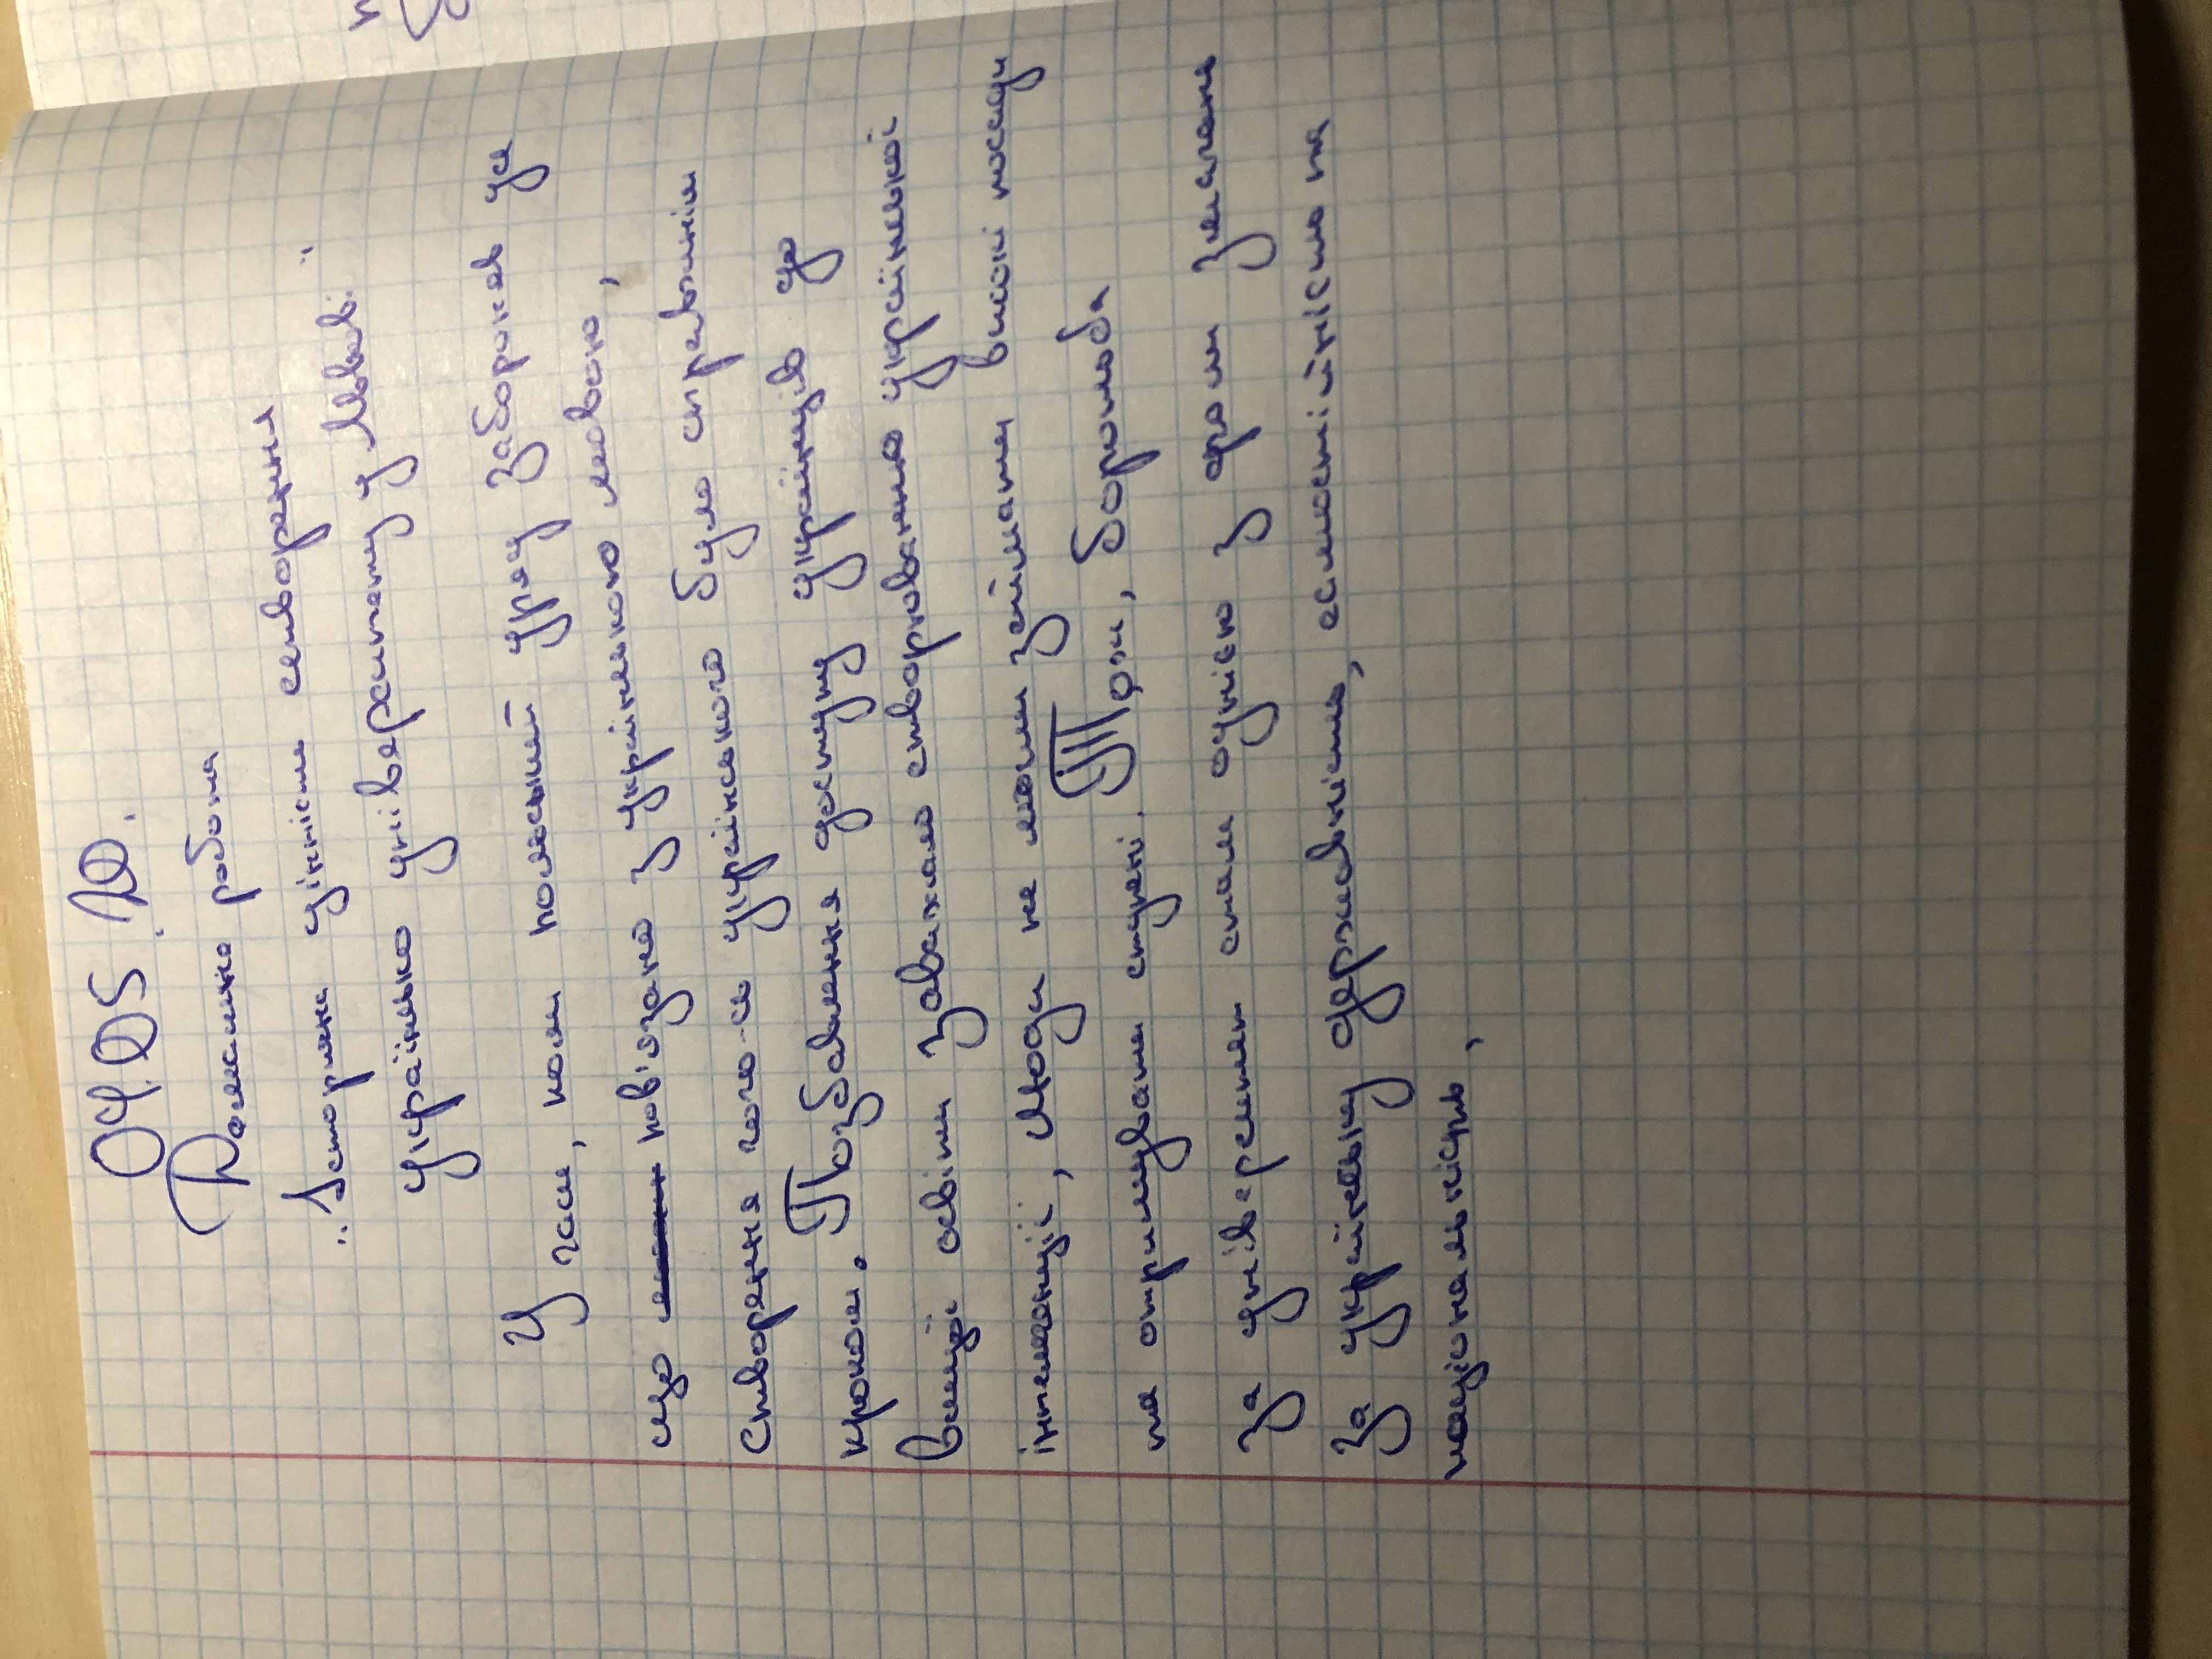 04.05.20.
Домашня робота
"Історична цінність створення
Українського університету у Львові."
У часи, коли польський уряд забороняв усе
що пов'язано з українською мовою,
створення чого-сь українського було справжнім
кроком. Позбавлення доступу українців до
вищої освіти заважало створюванню української
інтелегенції, люди не могли займати високі посади
на отримувати студені. Тож, боротьба
за університет стала однією з форм змагань
за українську державність, самостійність та
національність,